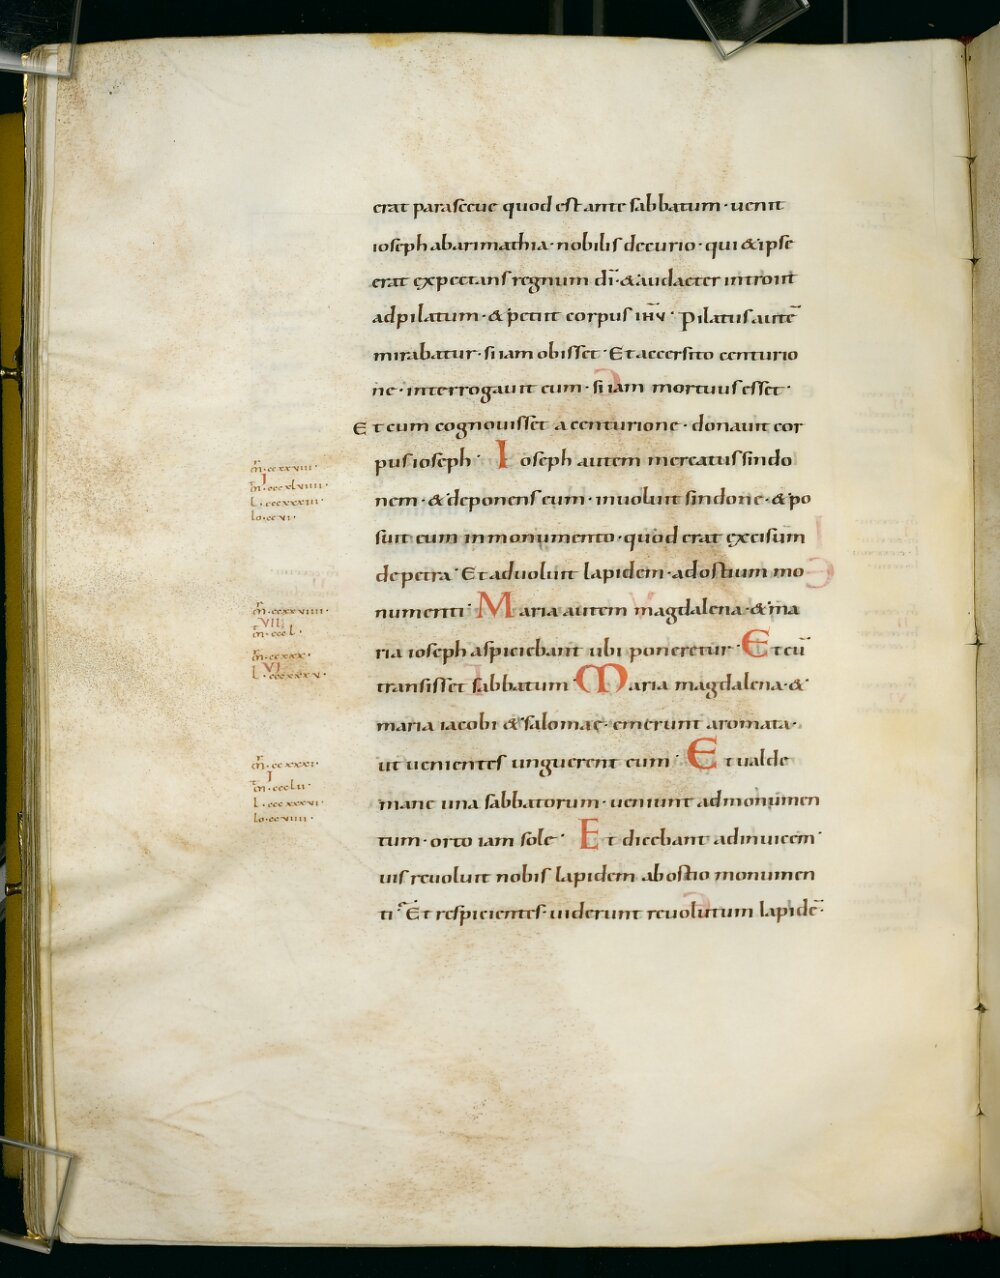 erat parasceue quod est ante sabbatum · uenit
ioseph abarimathia · nobilis decurio · qui & ipse
erat expectans regnum dī · & audacter introiit
adpilatum · & petiit corpus ihū · Pilatus autē
mirabatur · si iam obisset · Et accersito centurio
ne · interrogauit eum · si iam mortuus esset ·
Et cum cognouisset a centurione · donauit cor
pus ioseph · Ioseph autem mercatus sindo
nem · & deponens eum · inuoluit sindone · & po
suit eum in monumento · quod erat excisum
de petra · Et aduoluit lapidem · ad ostium mo
numenti · Maria autem magdalena · & ma
ria ioseph aspiciebant ubi poneretur · Et cū
transisset sabbatum · Maria magdalena · &
maria iacobi & salomae · emerunt aromata ·
ut uenientes unguerent eum · Et ualde
mane una sabbatorum · ueniunt ad monumen
tum · orto iam sole · Et dicebant adinuicem ·
uis reuoluit nobis lapidem ab ostio monumen
ti · Et respicientes · uiderunt reuolutum lapidē ·
m̄ · ccxxviii ·
I
m̄ · cccxlviiii ·
l · cccxxxiii ·
io · ccvi ·
m̄ · ccxxviiii ·
VII
m̄ · cccl ·
m̄ · ccxxx ·
VI
l · cccxxxv ·
m̄ · ccxxxi ·
I
m̄ · ccclii ·
l · cccxxxvi ·
io · ccviiii ·